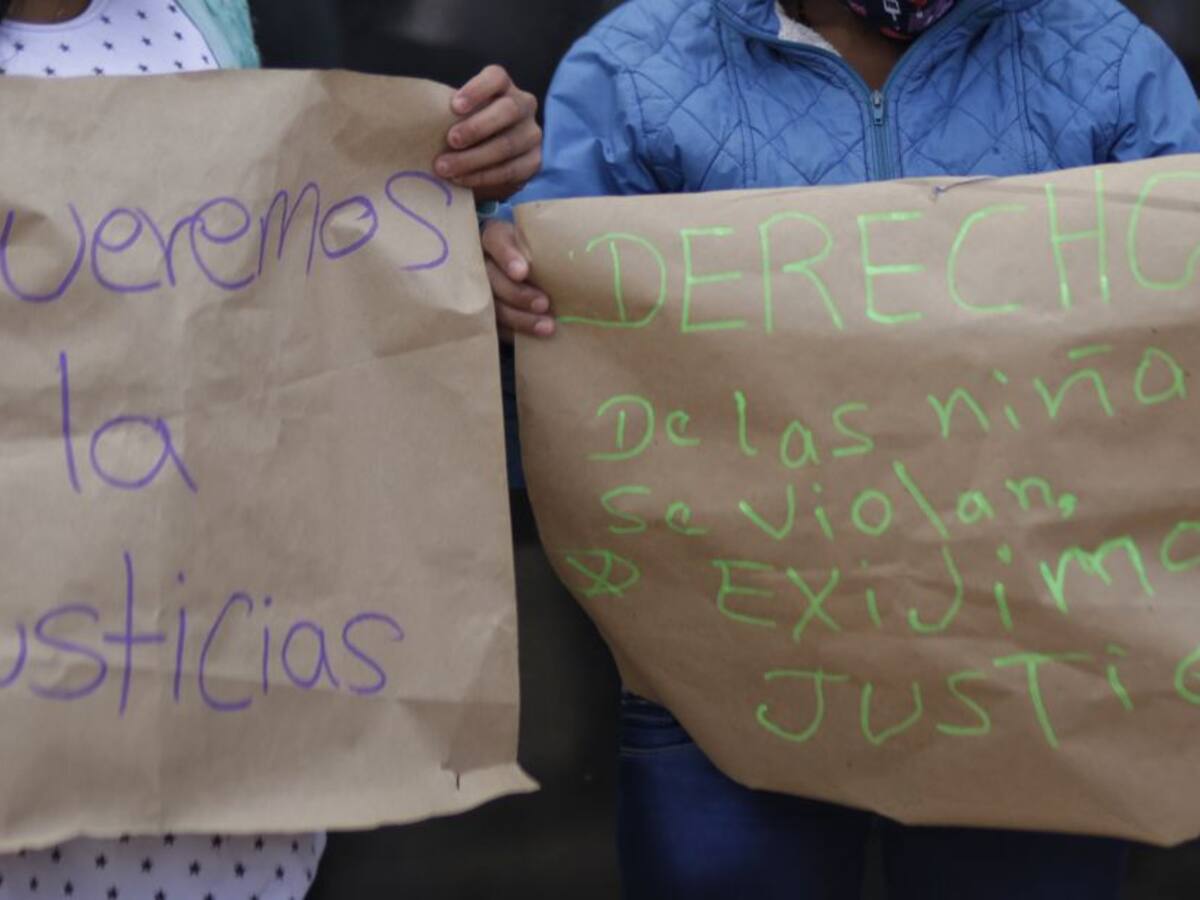 ueremos
la
usticias
DERECHO
De las niña
se violan,
EXiJimo
JUSTiC